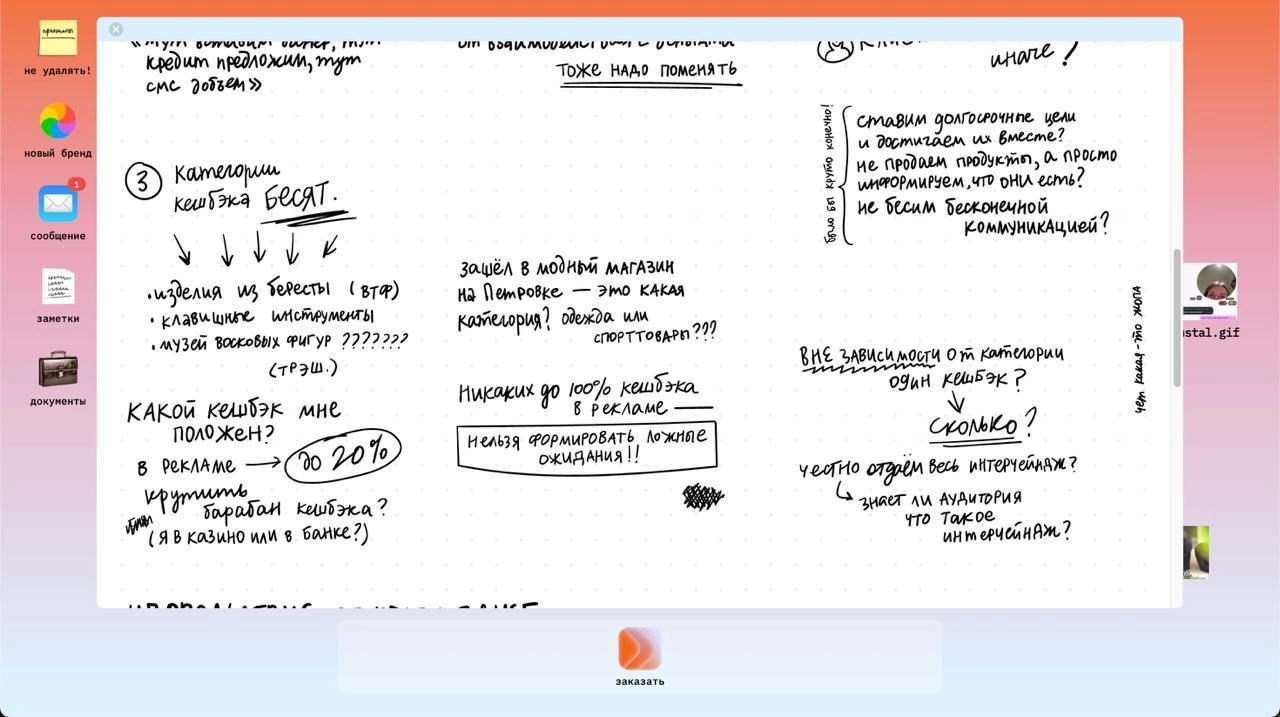 принципы
не удалять!
новый бренд
1
сообщение
заметки
документы
кредит предложим, тут
смс добьем»
тоже надо поменять
иначе?
было бы круто конечно!
ставим долгосрочные цели
и достигаем их вместе?
не продаем продукты, а просто
информируем, что они есть?
не бесим бесконечной
коммуникацией?
3
категории
кешбэка БЕСЯТ.
• изделия из бересты (втф)
• клавишные инструменты
• музей восковых фигур ???????
(трэш.)
какой кешбэк мне
положен?
в рекламе → до 20%
крутить
барабан кешбэка?
(я в казино или в банке?)
зашёл в модный магазин
на Петровке — это какая
категория? одежда или
спорттовары???
Никаких до 100% кешбэка
в рекламе —
нельзя формировать ложные
ожидания!!
вне зависимости от категории
один кешбэк?
сколько?
честно отдаём весь интерчейндж?
знает ли аудитория
что такое
интерчейндж?
чет какая-то жопа
ustal.gif
заказать